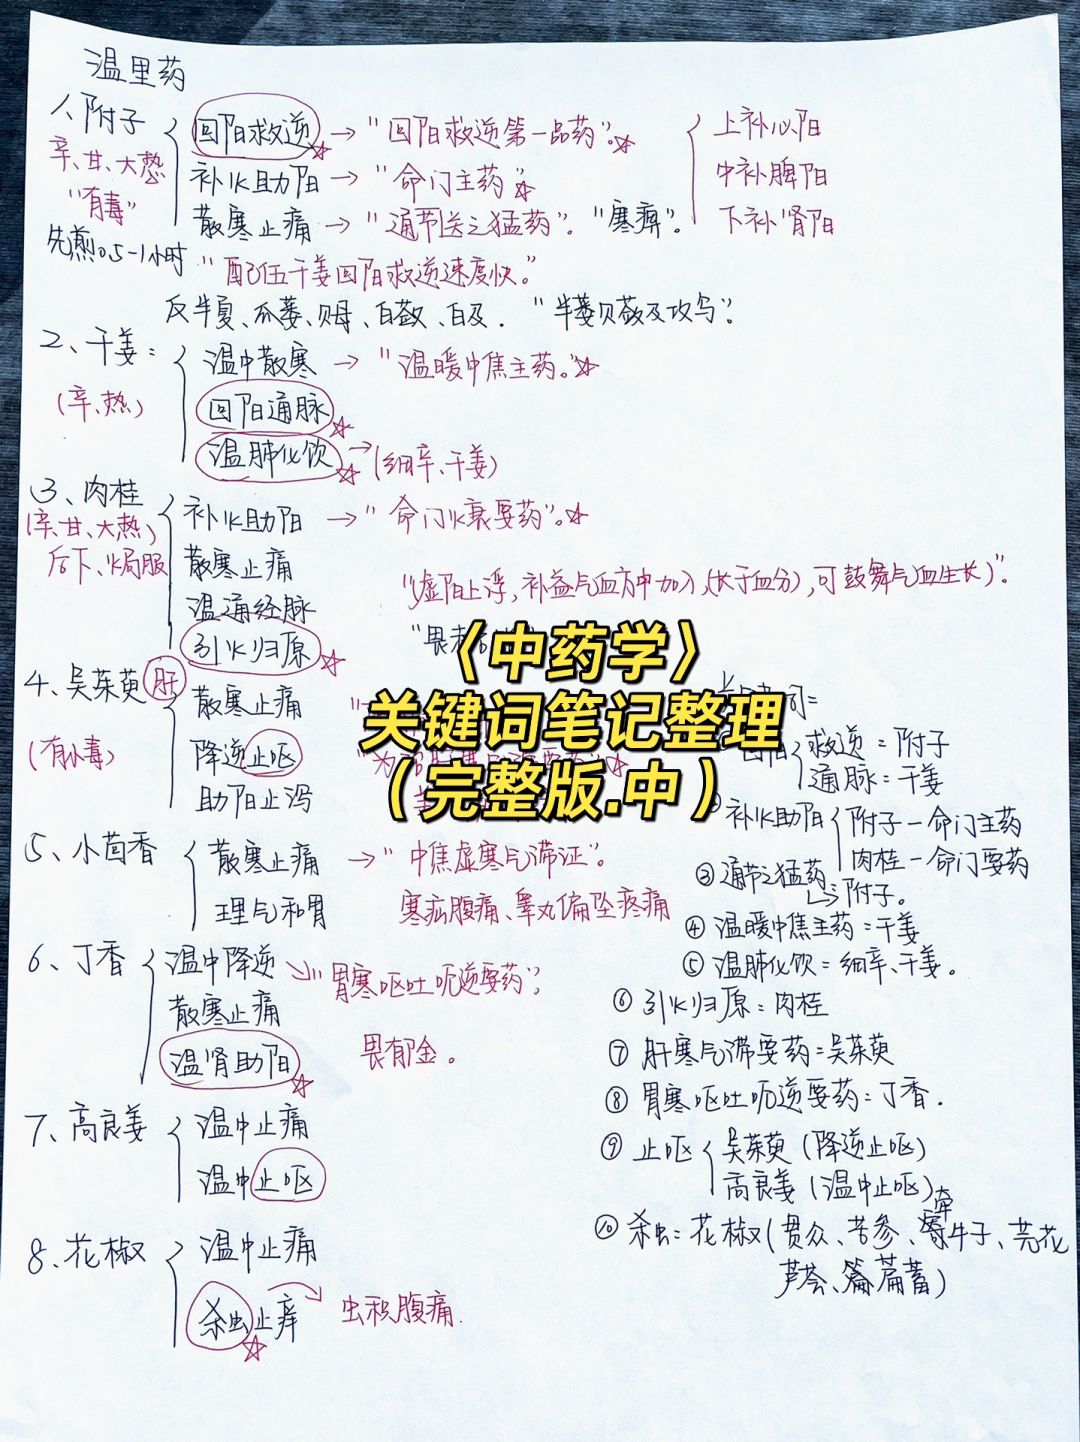 温里药
1、附子
辛、甘、大热
"有毒"
先煎0.5-1小时
回阳救逆 → "回阳救逆第一品药"。☆
补火助阳 → "命门主药"☆
散寒止痛 → "通节关之猛药"。"寒痹"。
上补心阳
中补脾阳
下补肾阳
"配伍干姜回阳救逆速度快。"
反半夏、瓜蒌、贝母、白蔹、白及. "半蒌贝蔹及攻乌"。
2、干姜:
(辛、热)
温中散寒 → "温暖中焦主药。"☆
回阳通脉☆
温肺化饮☆ → (细辛、干姜)
3、肉桂
(辛、甘、大热)
后下、焗服
补火助阳 → "命门火衰要药"。☆
散寒止痛
温通经脉
引火归原☆
"虚阳上浮,补益气血方中加入(长于血分),可鼓舞气血生长)"。
"畏
4、吴茱萸 肝
(有小毒)
散寒止痛
降逆止呕
助阳止泻
"为
〈中药学〉
关键词笔记整理
(完整版.中)
5、小茴香
散寒止痛 → "中焦虚寒气滞证"。
理气和胃
寒疝腹痛、睾丸偏坠疼痛
6、丁香
温中降逆 → "胃寒呕吐呃逆要药";
散寒止痛
温肾助阳☆
畏郁金。
7、高良姜
温中止痛
温中止呕
8、花椒
温中止痛
杀虫止痒☆ → 虫积腹痛.
词=
回阳 救逆=附子
通脉=干姜
补火助阳 附子-命门主药
肉桂-命门要药
③通节之猛药
→附子。
④温暖中焦主药=干姜
⑤温肺化饮=细辛、干姜。
⑥引火归原=肉桂
⑦肝寒气滞要药=吴茱萸
⑧胃寒呕吐呃逆要药=丁香.
⑨止呕 吴茱萸(降逆止呕)
高良姜(温中止呕)
⑩杀虫=花椒(贯众、苦参、牵牛子、芫花
芦荟、萹蓄)